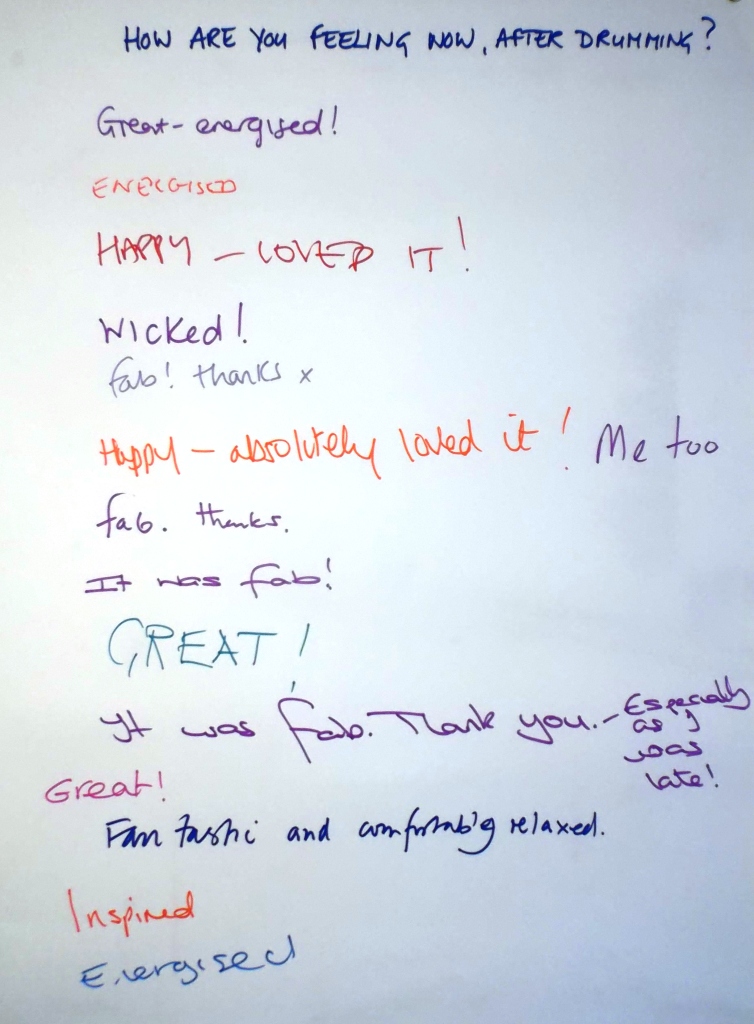 HOW ARE YOU FEELING NOW, AFTER DRUMMING?
Great - energised!
ENERGISED
HAPPY - LOVED IT!
Wicked!
fab! thanks x
Happy - absolutely loved it! Me too
fab. thanks.
It was fab!
GREAT!
It was fab. Thank you. - Especially
as I
was
late!
Great!
Fantastic and comfortably relaxed.
Inspired
Energised